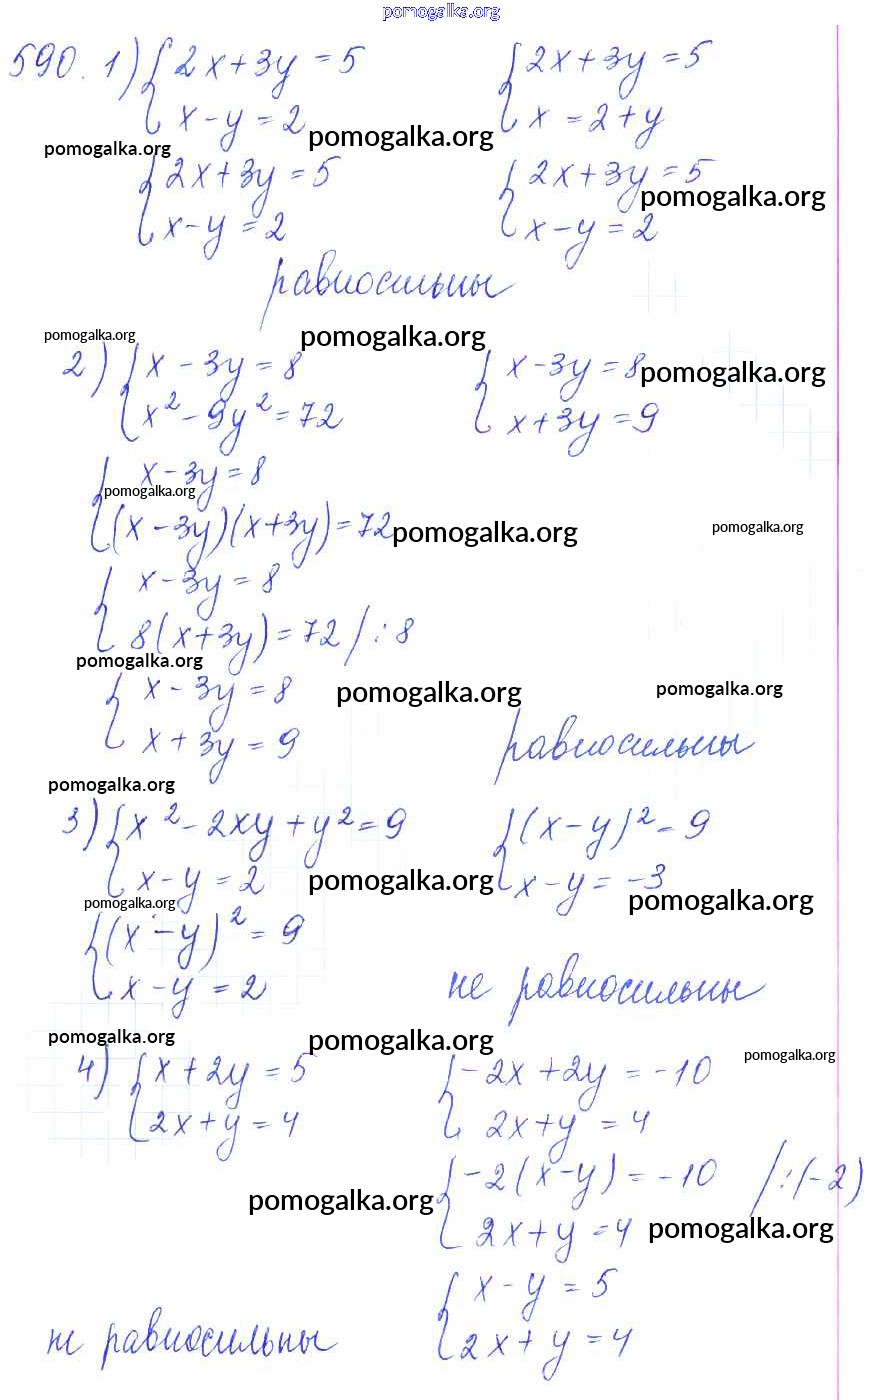 pomogalka.org
590. 1) { 2x+3y = 5 { 2x+3y = 5
x-y = 2 x = 2+y
pomogalka.org pomogalka.org
{ 2x+3y = 5 { 2x+3y = 5
pomogalka.org
x-y = 2 x-y = 2
равносильны
pomogalka.org pomogalka.org
2) { x - 3y = 8 { x-3y = 8
pomogalka.org
x² - 9y² = 72 x+3y = 9
{ x-3y = 8
pomogalka.org
(x-3y)(x+3y) = 72
pomogalka.org pomogalka.org
{ x-3y = 8
8(x+3y) = 72 /:8
pomogalka.org
{ x-3y = 8
pomogalka.org pomogalka.org
x+3y = 9 равносильны
pomogalka.org
3) { x² - 2xy + y² = 9 { (x-y)² = 9
x-y = 2 x-y = -3
pomogalka.org pomogalka.org pomogalka.org
{ (x-y)² = 9
x-y = 2 не равносильны
pomogalka.org pomogalka.org pomogalka.org
4) { x+2y = 5 { -2x+2y = -10
2x+y = 4 2x+y = 4
{ -2(x-y) = -10 /:(-2)
pomogalka.org
2x+y = 4 pomogalka.org
{ x-y = 5
не равносильны 2x+y = 4